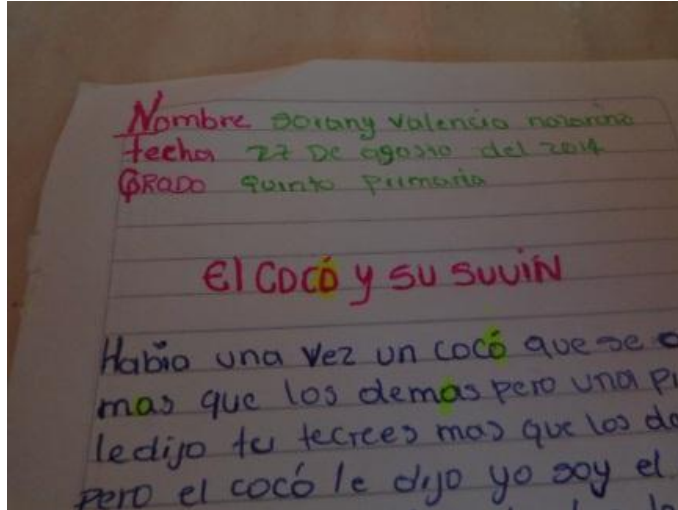 Nombre sorany valencia nazareno
fecha 27 De agosto del 2014
GRADO quinto primaria
El COCÓ y SU SUUIN
Habia una vez un cocó que se
mas que los demás pero una
ledijo tu tecrees mas que los
pero el cocó le dijo yo soy el